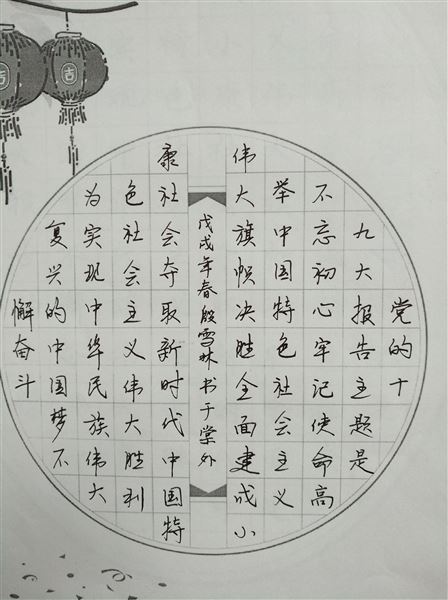 吉
吉
党的十
九大报告主题是
不忘初心牢记使命高
举中国特色社会主义
伟大旗帜决胜全面建成小
戊戌年春殷雪林书于堂外
康社会夺取新时代中国特
色社会主义伟大胜利
为实现中华民族伟大
复兴的中国梦不
懈奋斗